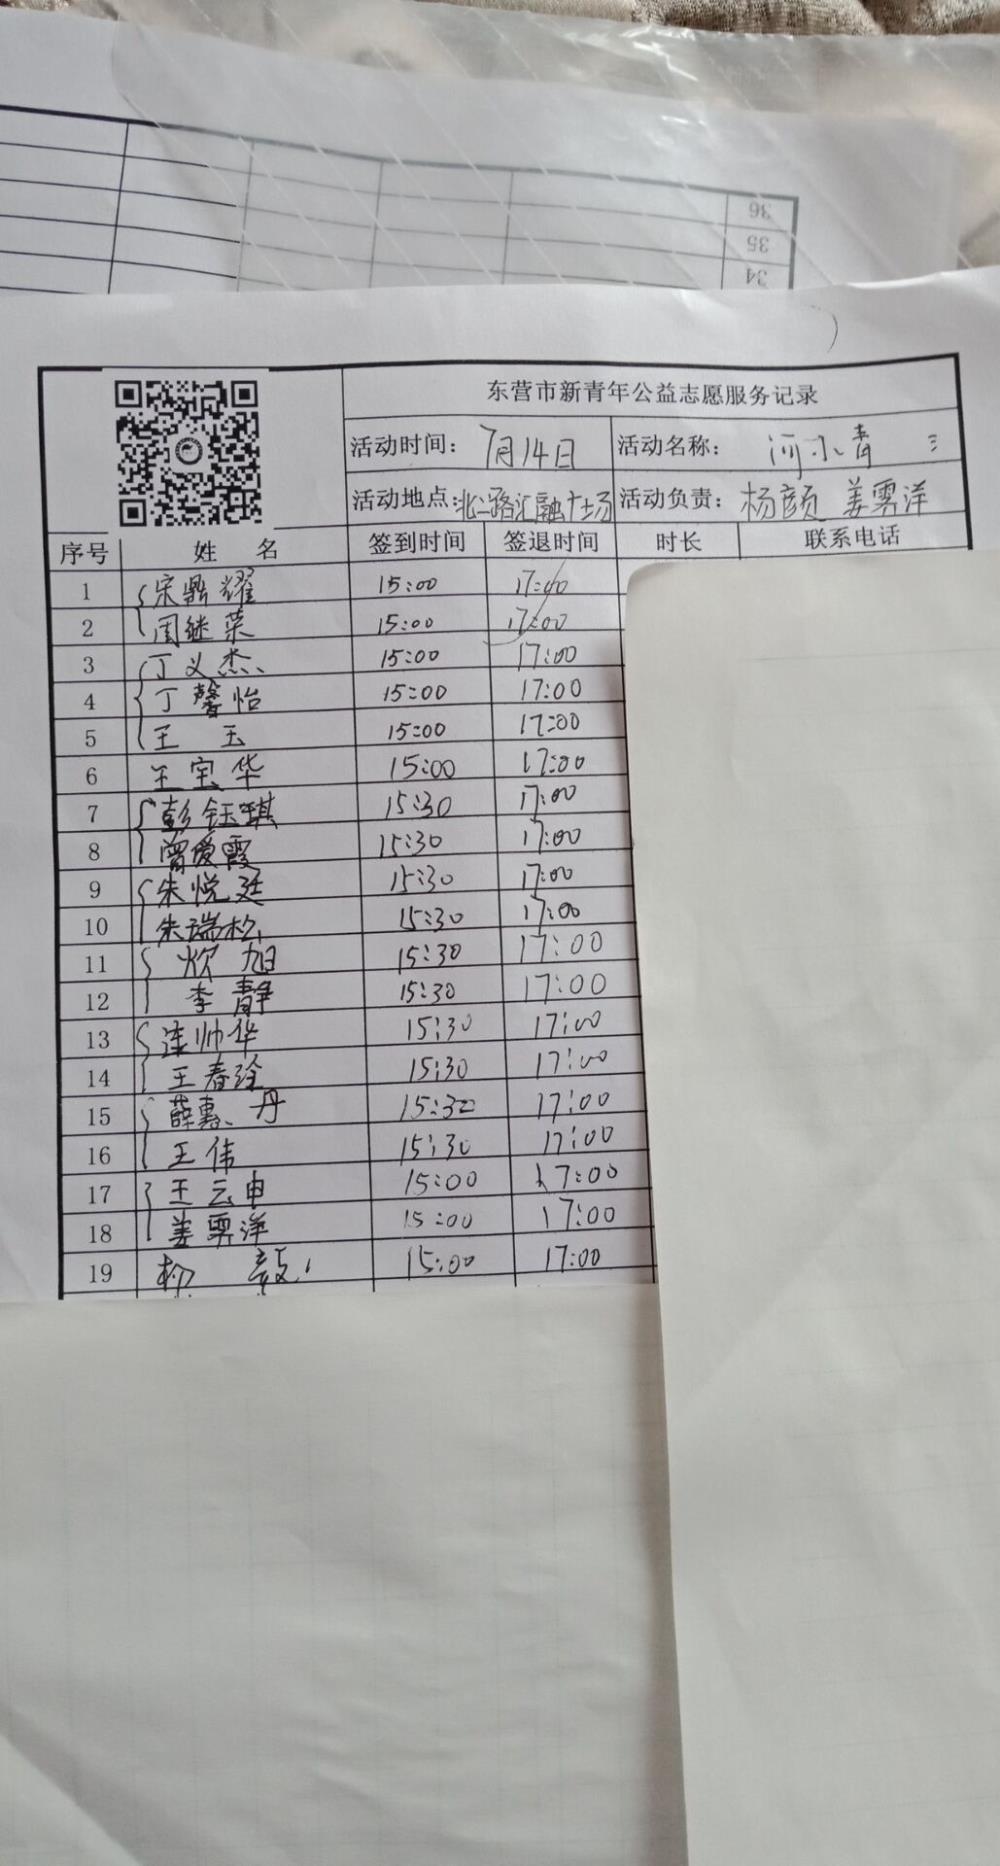 36
35
34
东营市新青年公益志愿服务记录
活动时间： 7月14日 活动名称： 河小青
活动地点：北二路汇融广场 活动负责： 杨颜 姜雪洋
序号 姓 名 签到时间 签退时间 时长 联系电话
1 宋鼎耀 15:00 17:00
2 周继荣 15:00 17:00
3 丁义杰 15:00 17:00
4 丁馨怡 15:00 17:00
5 王 玉 15:00 17:00
6 王宝华 15:00 17:00
7 彭钰琪 15:30 17:00
8 曾爱霞 15:30 17:00
9 朱悦廷 15:30 17:00
10 朱瑞松 15:30 17:00
11 旭 15:30 17:00
12 李静 15:30 17:00
13 连帅华 15:30 17:00
14 王春玲 15:30 17:00
15 薛惠丹 15:30 17:00
16 王伟 15:30 17:00
17 王云申 15:00 17:00
18 姜雪洋 15:00 17:00
19 杨 15:00 17:00